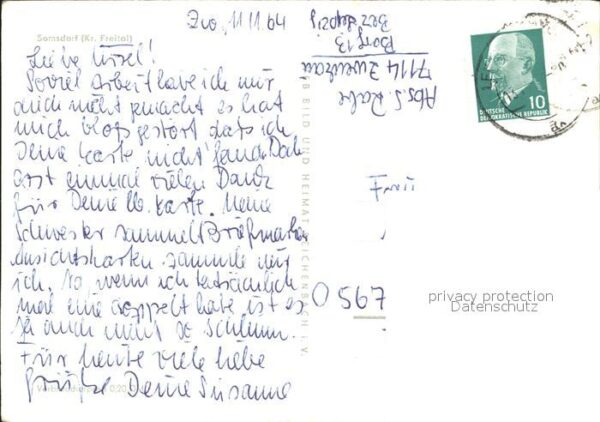 Somsdorf (Kr. Freital)
Zw., 11.11.64
Liebe Ursel!
Soviel Arbeit habe ich mir
auch nicht gemacht es hat
mich bloß gestört dass ich
Deine Karte nicht fand. Doch
erst einmal vielen Dank
für Deine lb. Karte. Meine
Schwester sammelt Briefmarken
Ansichtskarten sammle nur
ich. Na, wenn ich tatsächlich
mal eine doppelt habe, ist es
ja auch nicht so schlimm.
Für heute viele liebe
Grüße Deine Susanne
Abs. S. Rabe
7114 Zwenkau
Borg 13
Bez. Leipzig
VEB BILD UND HEIMAT REICHENBACH I. V.
DEUTSCHE
DEMOKRATISCHE REPUBLIK
10
O 567
privacy protection
Datenschutz
0,20